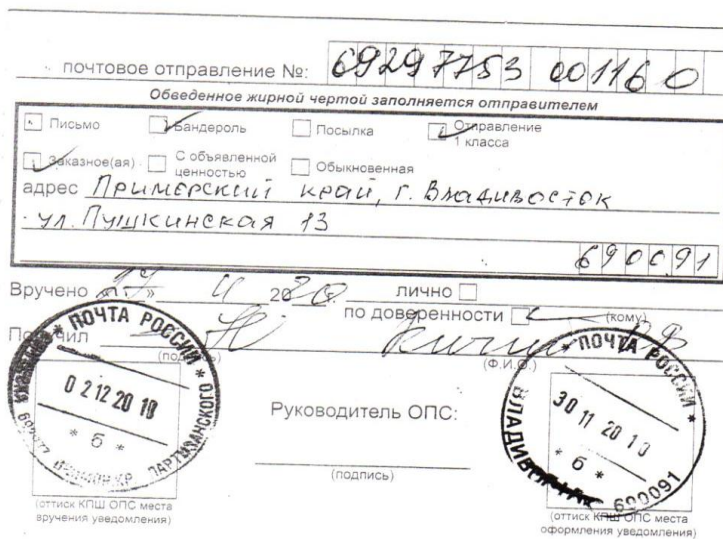 почтовое отправление №: 69297753 00116 0
Обведенное жирной чертой заполняется отправителем
Письмо Бандероль Посылка Отправление 1 класса
Заказное(ая) С объявленной ценностью Обыкновенная
адрес Приморский край, г. Владивосток
ул. Пушкинская 13
690091
Вручено « » 20 лично
по доверенности (кому)
Получил
(подпись) (Ф.И.О.)
ПОЧТА РОССИИ
02 12 20 10
* 6 *
ПАРТИЗАНСКОГО
Руководитель ОПС:
(подпись)
ПОЧТА РОССИИ
30 11 20 10
* 6 *
690091
(оттиск КПШ ОПС места вручения уведомления)
(оттиск КПШ ОПС места оформления уведомления)